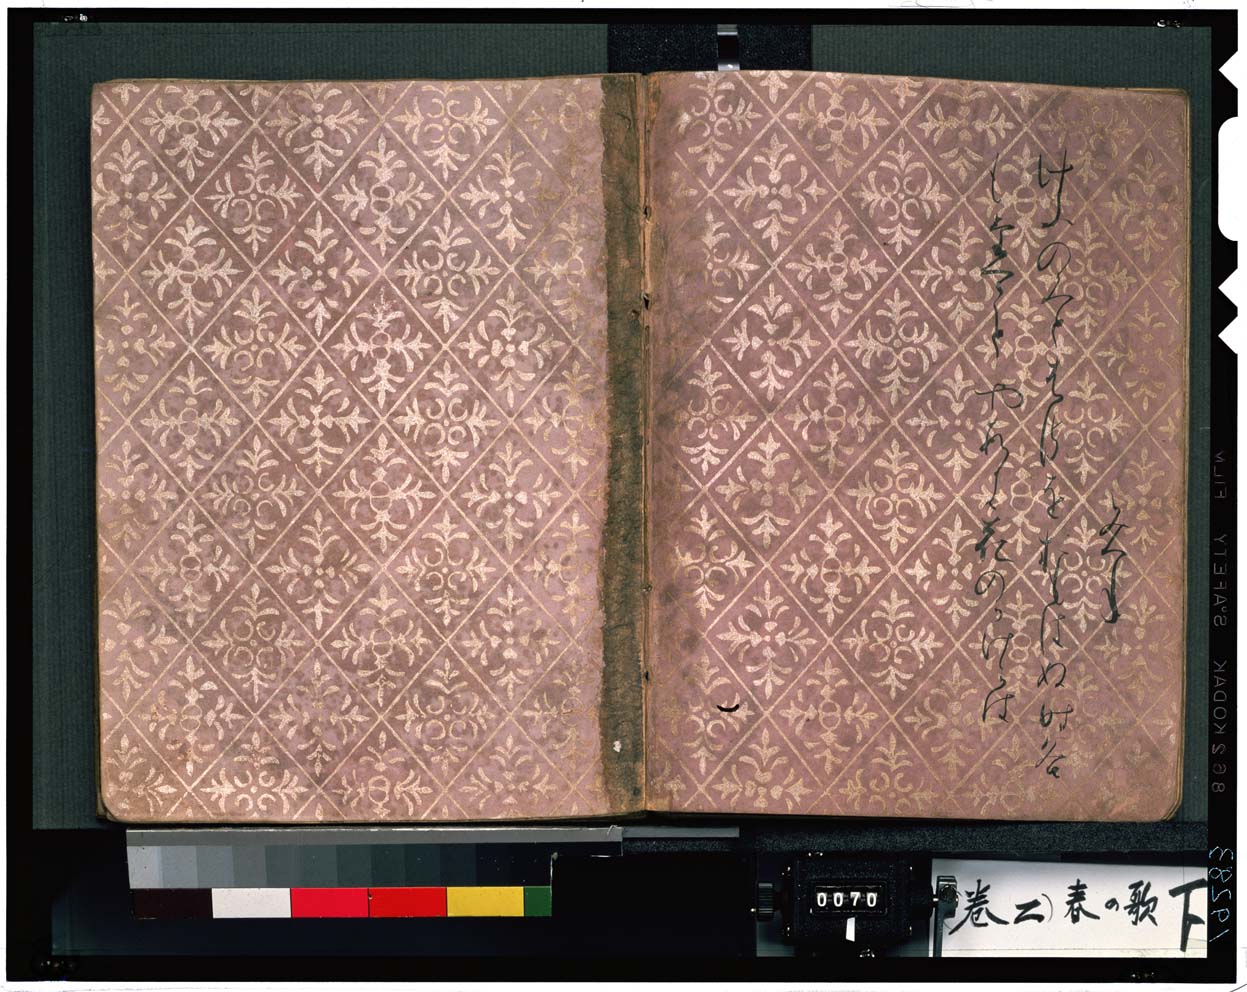 みつね
けふのみとはるをおもはぬ時谷
もたつことやすき花のかけかは
0070
(巻二)春の歌 下
KODAK SAFETY FILM